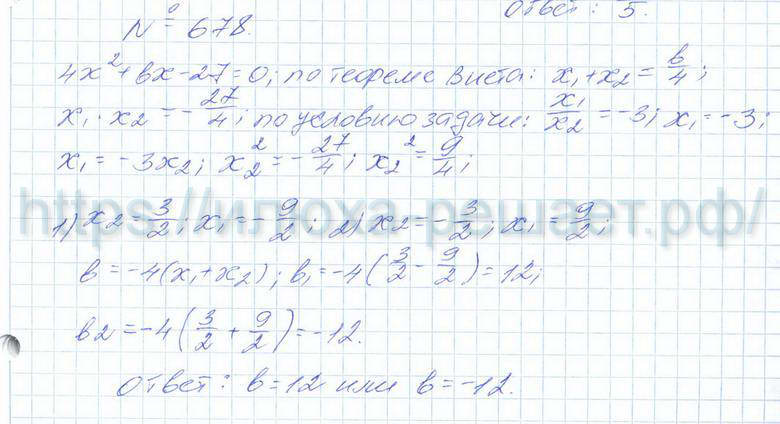 Ответ: 5.
№ 678.
4x² + bx - 27 = 0; по теореме Виета: x₁ + x₂ = b/4;
x₁ · x₂ = - 27/4; по условию задачи: x₁/x₂ = -3; x₁ = -3;
x₁ = -3x₂; x₂² = - 27/4; x₂² = 9/4;
https://илюха-решает.рф/
1) x₂ = 3/2; x₁ = - 9/2; 2) x₂ = - 3/2; x₁ = 9/2;
b = -4(x₁ + x₂); b₁ = -4(3/2 - 9/2) = 12;
b2 = -4(3/2 + 9/2) = -12.
Ответ: b = 12 или b = -12.